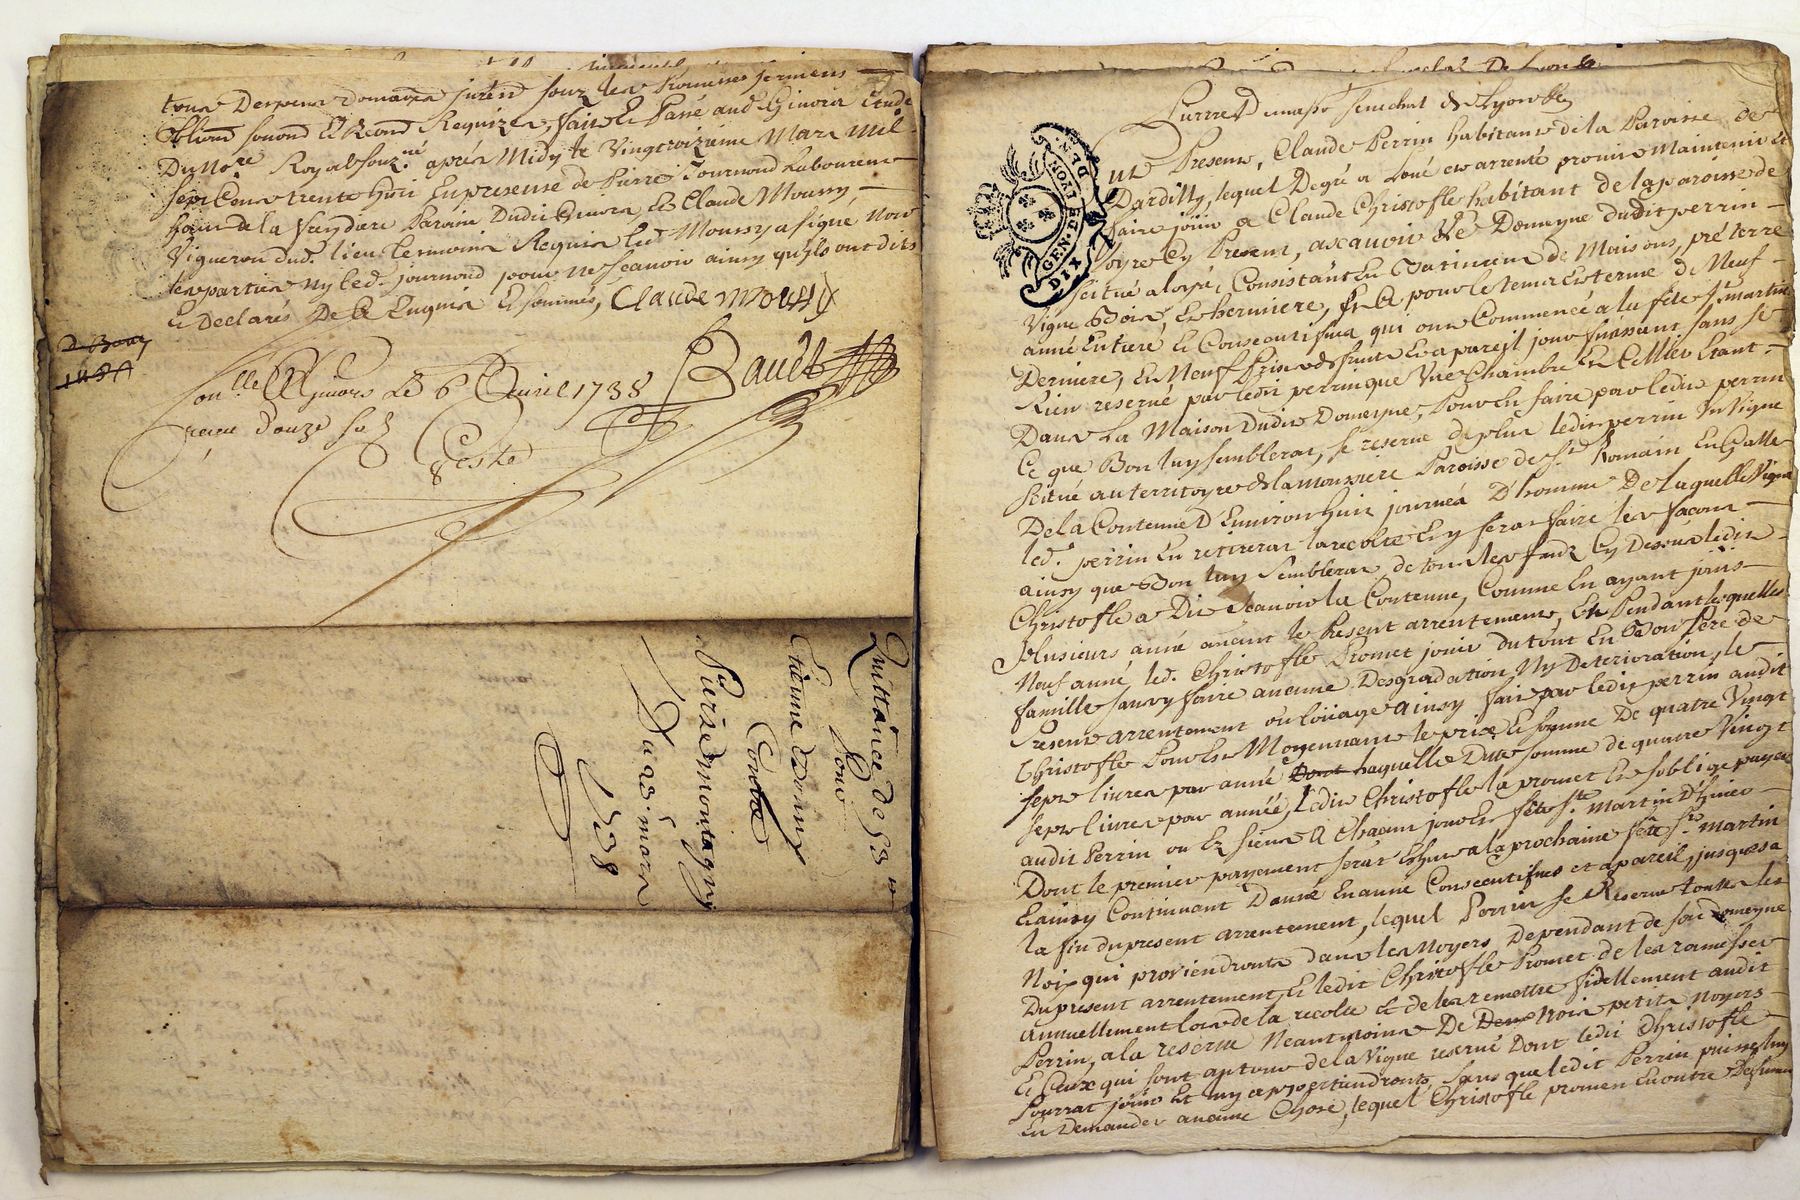 tous Despens Domages
soumond et Renond Requizes, fait et Passé aud. Givors Etude
Du No.re Royal souz.né après Midy le Vingt troizieme Mars Mil
sept Cens trente huit En presense de Pierre Journoud Laboureur
de la freydiere Paroisse Dudit Givors, et Claude Moussy
Vigneron dud. lieu temoins Requis led. Moussy a signé, Non
les parties ny led. journoud pour ne scavoir ainsy qu'ils ont dit
et Declaré De ce Enquis et sommés, Claude moussy
Baudt
Con.llé A Givors Le 6 Avril 1738
reçu douze sols
Quittance de 53
Pour
Etienne
Contre
Pierre montagny
Du 23.e mars
1738
senechal de Lyon
GEN. DE LYON
DIX DEN
Fut Present, Claude Perrin habitant de la Paroisse de
Dardilly, lequel De gré a Loué et arrenté promis Maintenir et
faire jouir a Claude Christofle habitant de la paroisse de
Cy Present, ascavoir Le Domeyne dudit perrin
scitué a Consistant En Batimens de Maisons, pré terre
Vigne Bois, et herniere, Et ce pour le tems et terme de Neuf
anné Entiere et Consecutifues qui ont Commencé a la fête St. martin
Derniere, Et Neuf Prise de fruits Et a pareil jour finissant sans se
Rien reservé par ledit perrin que Une Chambre et Cellier Etant
Dans La Maison Dudit Domeyne, Pour En faire par ledit perrin
Ce que Bon luy semblerat, se reserve de plus ledit perrin Un Vigne
scitué au territoyre de la moussiere Paroisse de St. Romain En Galle
De la Contenue D'Environ huit journeés D'homme De laquelle Vigne
led. perrin En retirerat la recolte Et y ferat faire les façons
ainsy que Bon luy Semblerat de tous les fonds Cy Dessus ledit
Christofle a Dit scavoir la Contenue, Comme En ayant jouis
plusieurs anné avant le Present arrentement, Et Pendant lesquelles
Neuf anné led. Christofle Promet jouir du tout En Bon Pere de
famille sans y faire aucune Desgradation Ny Deterioration, le
Present arrentement ou loüage ainsy fait par ledit perrin audit
Christofle Pour Et Moyennant le prix Et somme De quatre Vingt
sept livres par anné Dont laquelle Dite somme de quatre Vingt
sept livres par année, Ledit Christofle la promet Et s'oblige payer
audit Perrin ou Ez siens A Chacun jour Et fête St. Martin D'hiver
Dont le premier payement serat Eschu a la prochaine fête St. Martin
Et ainsy Continuant D'anné En anné Consecutifues et a pareil, jusques a
la fin du present arrentement, lequel Perrin se Reserve toutes les
Noix qui proviendront dans les Noyers Dependant de son Domeyne
Du present arrentement, Et ledit Christofle Promet de les ramasser
annuellement lors de la recolte Et de les remettre fidellement audit
Perrin, a la reserve Neantmoins De Deux Trois petits Noyers
Et Ceux qui sont autour de la Vigne reservé Dont ledit Christofle
Pourrat jouir Et luy appartiendront, sans que ledit Perrin puisse luy
En Demander aucune Chose, lequel Christofle promet En outre